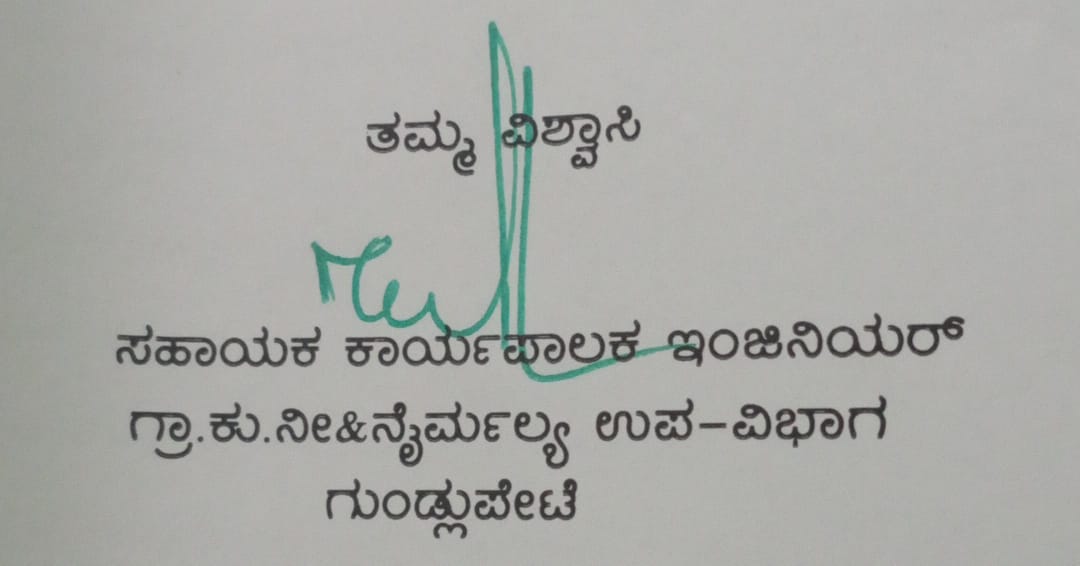 ತಮ್ಮ ವಿಶ್ವಾಸಿ
ಸಹಾಯಕ ಕಾರ್ಯಪಾಲಕ ಇಂಜಿನಿಯರ್
ಗ್ರಾ.ಕು.ನೀ&ನೈರ್ಮಲ್ಯ ಉಪ-ವಿಭಾಗ
ಗುಂಡ್ಲುಪೇಟೆ